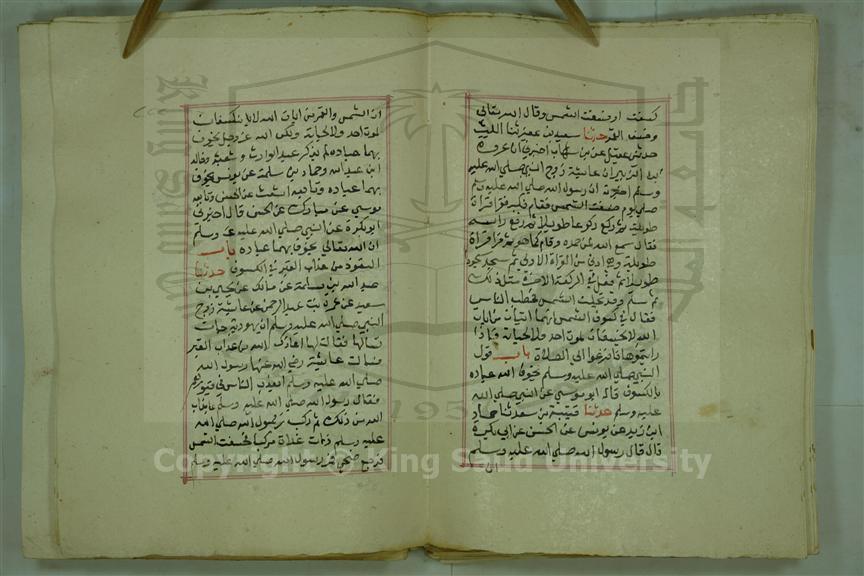 كسفت او خسفت الشمس وقال الله تعالى
وخسف القمر حدثنا سعيد بن عفير ثنا الليث
حدثني عقيل عن بن شهاب اخبرني ان عروة
بن الزبير ان عايشة زوج النبي صلى الله عليه
وسلم اخبرته ان رسول الله صلى الله عليه وسلم
صلى يوم خسفت الشمس فقام فكبر فقرا قراة
طويلة ثم ركع ركوعا طويلا ثم رفع راسه
فقال سمع الله لمن حمده وقام كما هو ثم قرا قراة
طويلة وهي ادنى من القراة الاولى ثم سجد سجودا
طويلا ثم فعل في الركعة الاخرة مثل ذلك
ثم سلم وقد تجلت الشمس فخطب الناس
فقال في كسوف الشمس انهما ايتان من ايات
الله لا يخسفان لموت احد ولا لحياته فاذا
رايتموها فافزعوا الى الصلاة باب قول
النبي صلى الله عليه وسلم يخوف الله عباده
بالكسوف قاله ابو موسى عن النبي صلى الله
عليه وسلم حدثنا قتيبة بن سعيد ثنا حماد
ابن زيد عن يونس عن الحسن عن ابي بكرة
قال قال رسول الله صلى الله عليه وسلم
ان
ان الشمس والقمر من ايات الله لا ينكسفان
لموت احد ولا لحياته ولكن الله عز وجل يخوف
بهما عباده لم يذكر عبد الوارث وشعبة وخالد
ابن عبد الله وحماد بن سلمة عن يونس يخوف
بهما عباده وتابعه اشعث عن الحسن وتابعه
موسى عن مبارك عن الحسن قال اخبرني
ابو بكرة عن النبي صلى الله عليه وسلم
ان الله تعالى يخوف بهما عباده باب
التعوذ من عذاب القبر في الكسوف حدثنا
عبد الله بن مسلمة عن مالك عن يحيى بن
سعيد عن عمرة بنت عبد الرحمن عن عايشة زوج
النبي صلى الله عليه وسلم ان يهودية جات
تسالها فقالت لها اعاذك الله من عذاب القبر
فسالت عايشة رضي الله عنها رسول الله
صلى الله عليه وسلم ايعذب الناس في قبورهم
فقال رسول الله صلى الله عليه وسلم عايذا بالله
من ذلك ثم ركب رسول الله صلى الله
عليه وسلم ذات غداة مركبا فخسفت الشمس
فرجع ضحى فمر رسول الله صلى الله عليه وسلم
1957
Copyright © King Saud University